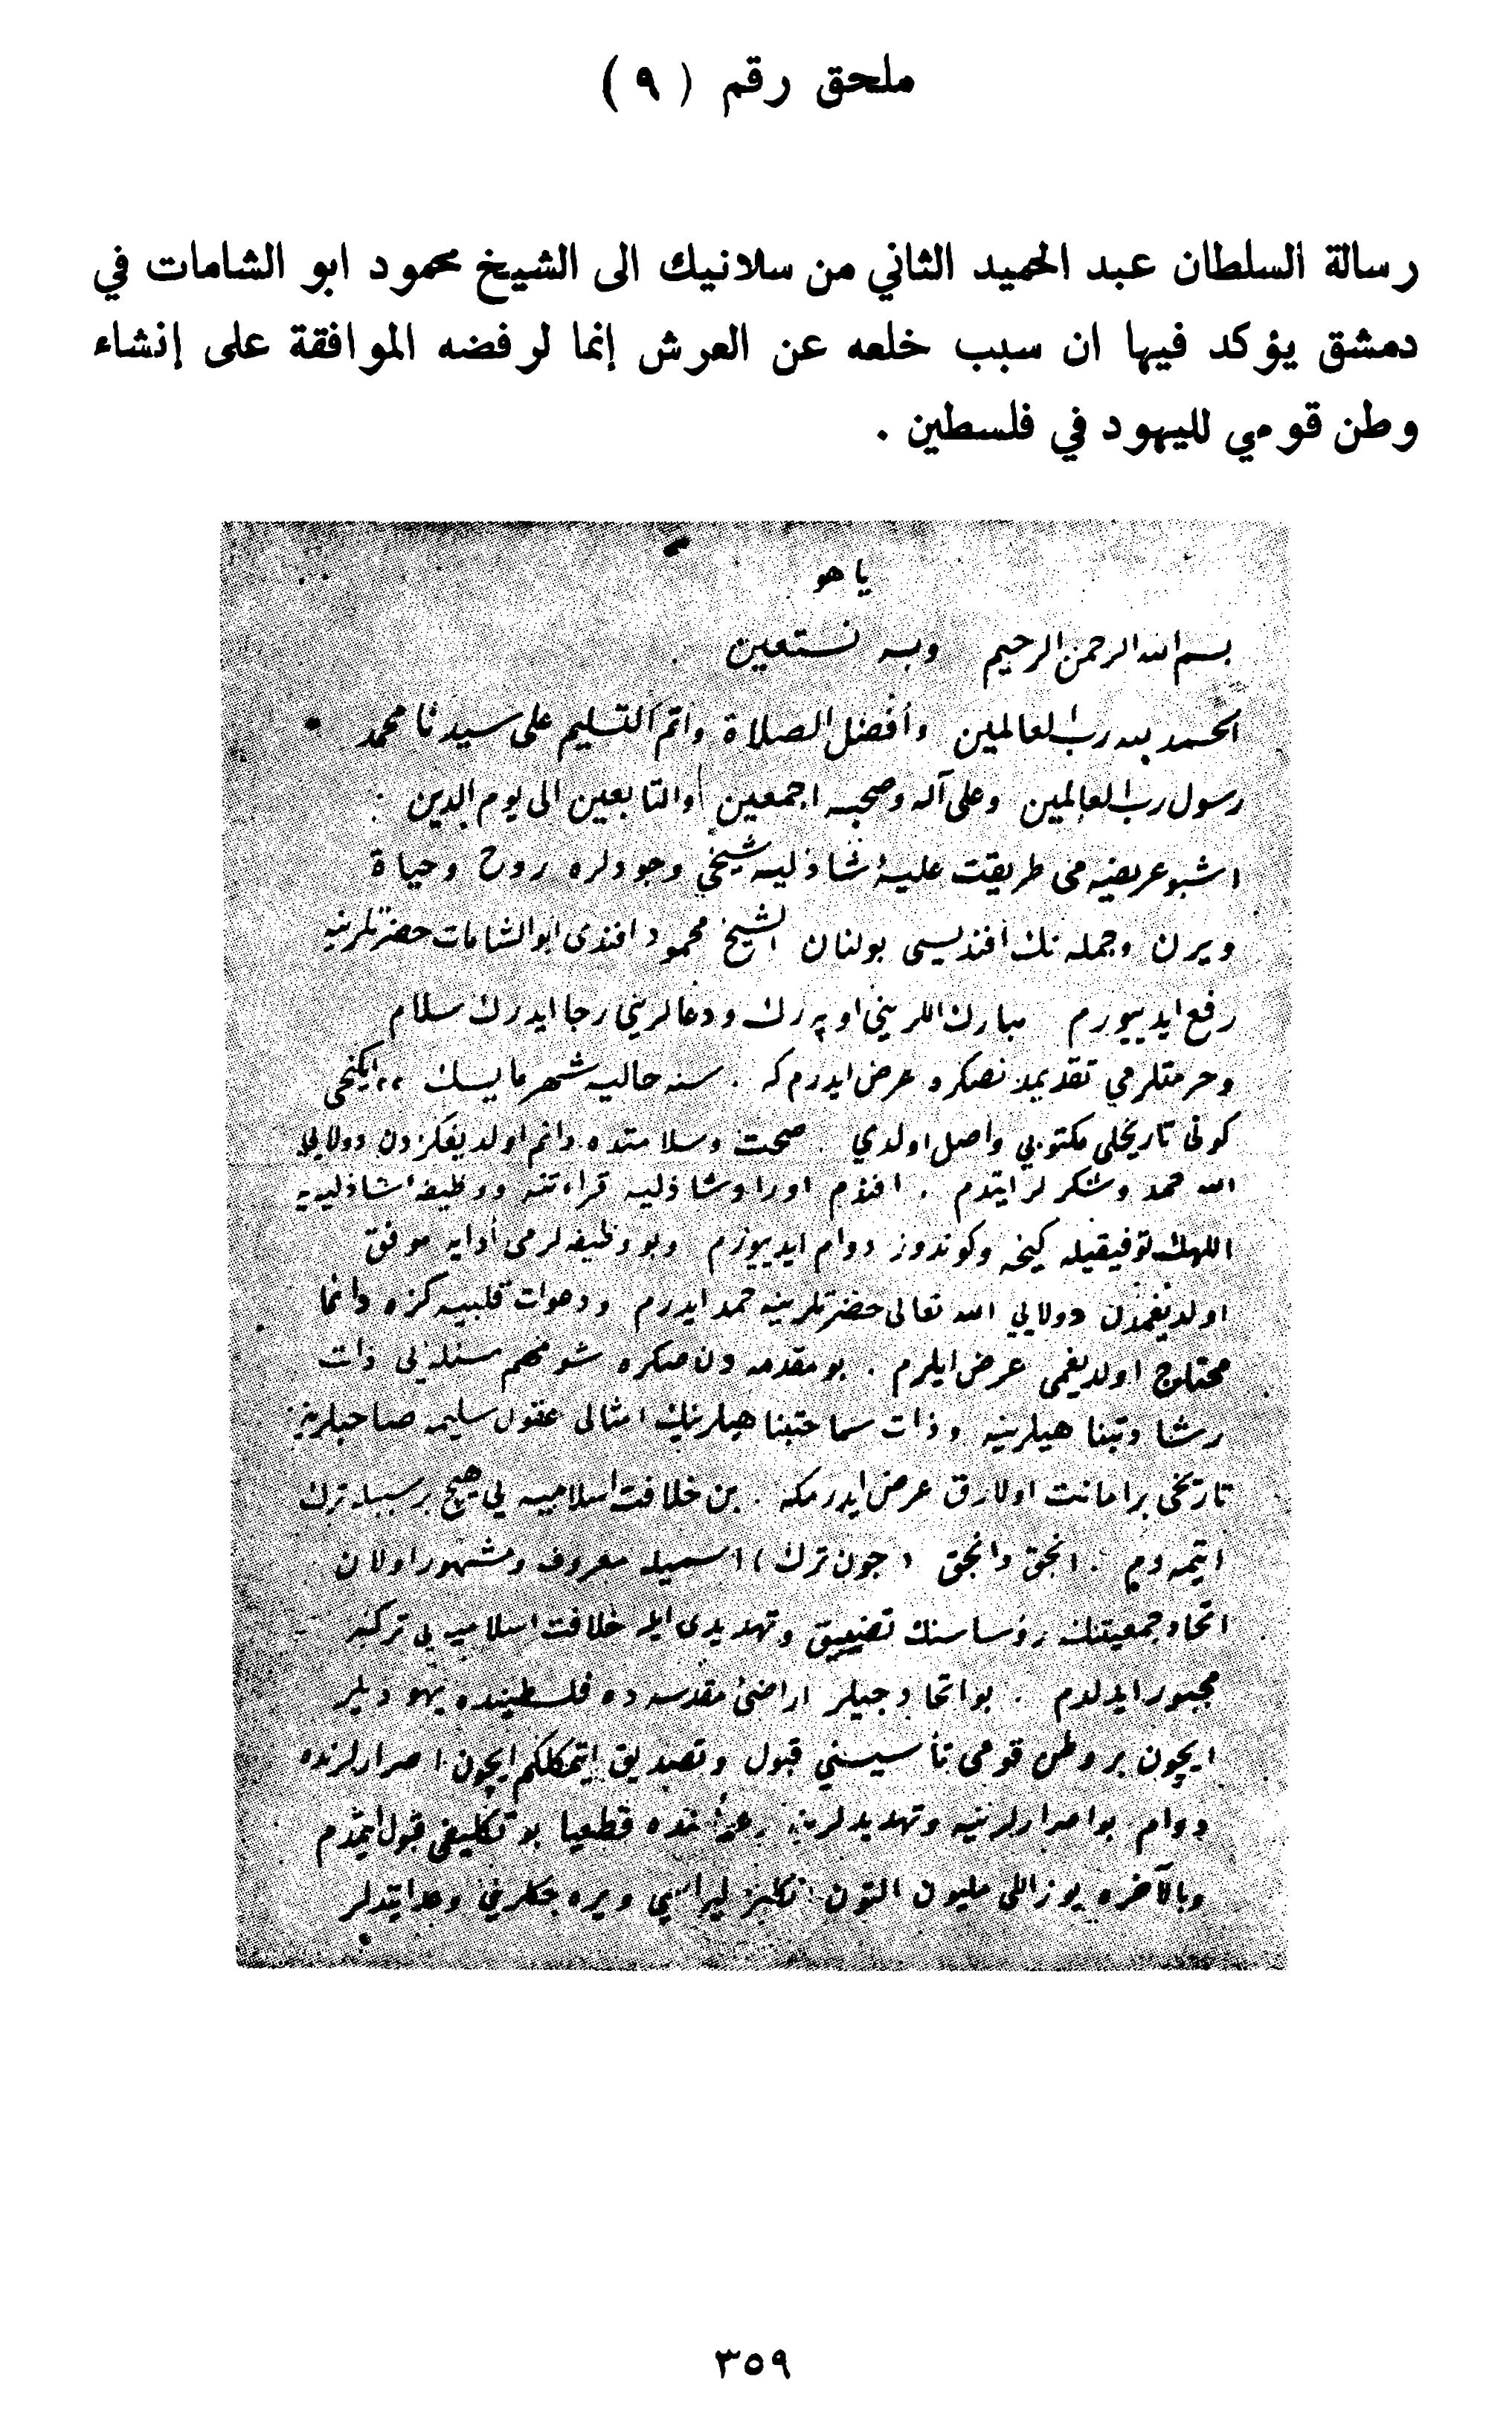 ملحق رقم ( ٩ )
رسالة السلطان عبد الحميد الثاني من سلانيك الى الشيخ محمود ابو الشامات في
دمشق يؤكد فيها ان سبب خلعه عن العرش إنما لرفضه الموافقة على إنشاء
وطن قومي لليهود في فلسطين .
يا هو
بسم الله الرحمن الرحيم وبه نستعين
الحمد لله رب العالمين وأفضل الصلاة وأتم التسليم على سيدنا محمد
رسول رب العالمين وعلى آله وصحبه اجمعين والتابعين الى يوم الدين .
اشبو عريضه مى طريقت عليهٔ شاذليه شيخي وجودلره روح وحياة
ويرن وجمله نك افنديسى بولنان الشيخ محمود افندى ابو الشامات حضرتلرينه
رفع ايدييورم مبارك اللريني اوپه رك ودعالريني رجا ايدرك سلام
وحرمتلرمي تقديمدنصكره عرض ايدرم كه . سنه حاليه شهر مايسك ٢٢ ايكنجى
كونى تاريخلى مكتوبي واصل اولدي . صحت وسلامتده دائم اولديغكزدن دولايى
الله حمد وشكرلر ايتدم . افندم اوراد شاذليه قراءتنه ووظيفهٔ شاذليه يه
اللهك توفيقيله كيجه وكوندوز دوام ايدييورم وبو وظيفه لرمى أدايه موفق
اولديغمدن دولايي الله تعالى حضرتلرينه حمد ايدرم ودعوات قلبيه كزه دائما
محتاج اولديغمى عرض ايلرم . بو مقدمه دن صكره شو مهم مسئله يى ذات
رشادتپناهيلرينه وذات سماحتپناهيلرينك امثالى عقول سليمه صاحبلرينه
تاريخى بر امانت اولارق عرض ايدرمكه . بن خلافت اسلاميه يي هيچ بر سببله ترك
ايتمه دم . انجق وانجق ( جون ترك ) اسميله معروف ومشهور اولان
اتحاد جمعيتنك رؤساسنك تضييق وتهديدى ايله خلافت اسلاميه يى تركنه
مجبور ايدلدم . بو اتحادجيلر اراضئ مقدسه ده فلسطينده يهوديلر
ايچون بر وطن قومى تأسيسني قبول وتصديق ايتمكلكم ايچون اصرارلرنده
دوام بو اصرارلرينه وتهديدلرينه رغماً بنده قطعيا بو تكليفى قبول ايتمدم
وبالآخره يوز اللى مليون التون انكليز ليراسي ويره جكلريني وعد ايتديلر
٣٥٩